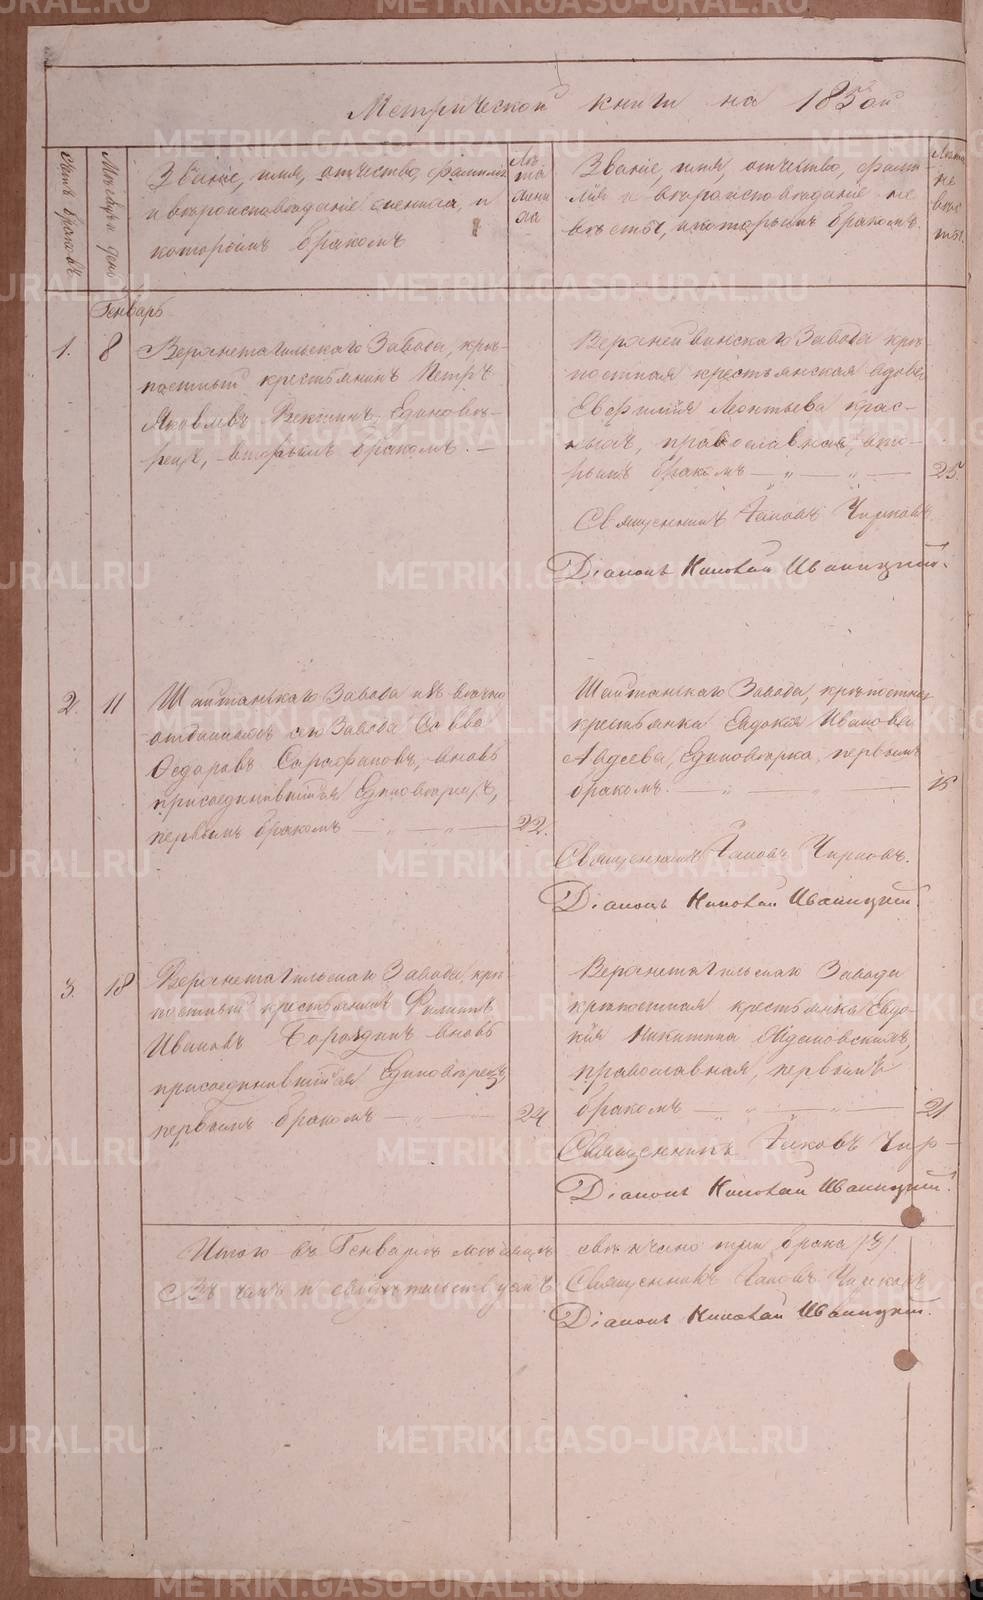 Метрической книги на 1850й
Счетъ браковъ
Мѣсяцъ и день
Званіе, имя, отчество, фамилія
и вѣроисповѣданіе жениха, и
которымъ бракомъ
Лѣ
та
жени
ха
Званіе, имя, отчество, фами-
лія и вѣроисповѣданіе не
вѣсты, и которымъ бракомъ.
Лѣта
не
вѣс
ты.
Генварь
1.
8
Верхнетагильскаго Завода, крѣ-
постный крестьянинъ Петръ
Яковлевъ Векшинъ, Единовѣ-
рецъ, вторымъ бракомъ. —
Верхнейвинскаго Завода крѣ-
постная крестьянская вдова
Евфимія Леонтьева Крас-
ныхъ, православная, вто-
рымъ бракомъ — „ — „ —
25.
Священникъ Іаковъ Чирковъ
Діаконъ Николай Иваницкій.
2.
11
Шайтанскаго Завода
отданныхъ Завода Савва
Ѳедоровъ Сарафановъ, вновь
присоединившійся Единовѣрецъ,
первымъ бракомъ — „ — „ —
22.
Шайтанскаго Завода, крѣпостная
крестьянка Евдокія Иванова
Авдеева, Единовѣрка, первымъ
бракомъ. — „ — „ —
18
Священникъ Іаковъ Чирковъ.
Діаконъ Николай Иваницкій.
3.
18
Верхнетагильскаго Завода, крѣ-
постный крестьянинъ Филиппъ
Ивановъ Бородинъ вновь
присоединившійся Единовѣрецъ,
первымъ бракомъ — „ —
24
Верхнетагильскаго Завода
крѣпостная крестьянка Евдо-
кія Никитина
православная, первымъ
бракомъ — „ — „ — „ —
21
Священникъ Іаковъ Чир—
Діаконъ Николай Иваницкій.
Итого въ Генварѣ мѣсяцѣ свѣнчано три брака /3/
Въ чемъ и свидѣтельствуемъ Священникъ Іаковъ Чирковъ
Діаконъ Николай Иваницкій.
METRIKI.GASO-URAL.RU